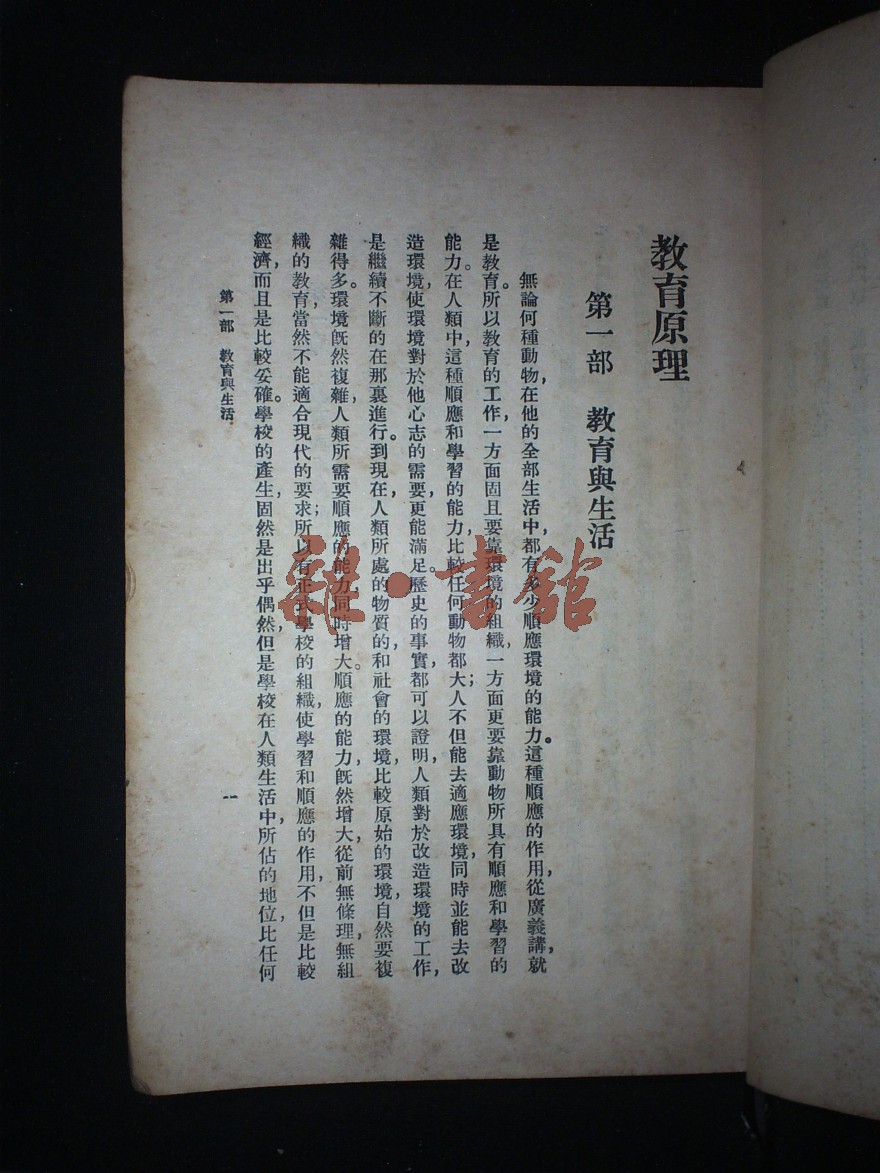 教育原理
第一部　教育與生活
無論何種動物,在他的全部生活中,都有多少順應環境的能力。這種順應的作用,從廣義講,就
是教育。所以教育的工作,一方面固且要靠環境的組織,一方面更要靠動物所具有順應和學習的
能力。在人類中,這種順應和學習的能力,比較任何動物都大;人不但能去適應環境,同時並能去改
造環境,使環境對於他心志的需要,更能滿足。歷史的事實,都可以證明,人類對於改造環境的工作,
是繼續不斷的在那裏進行。到現在,人類所處的物質的,和社會的環境,比較原始的環境,自然要複
雜得多。環境旣然複雜,人類所需要順應的能力,同時增大。順應的能力,旣然增大,從前無條理,無組
織的教育,當然不能適合現代的要求;所以有正式學校的組織,使學習和順應的作用,不但是比較
經濟,而且是比較妥確。學校的產生,固然是出乎偶然,但是學校在人類生活中,所佔的地位,比任何
第一部　教育與生活
一
雜·書館